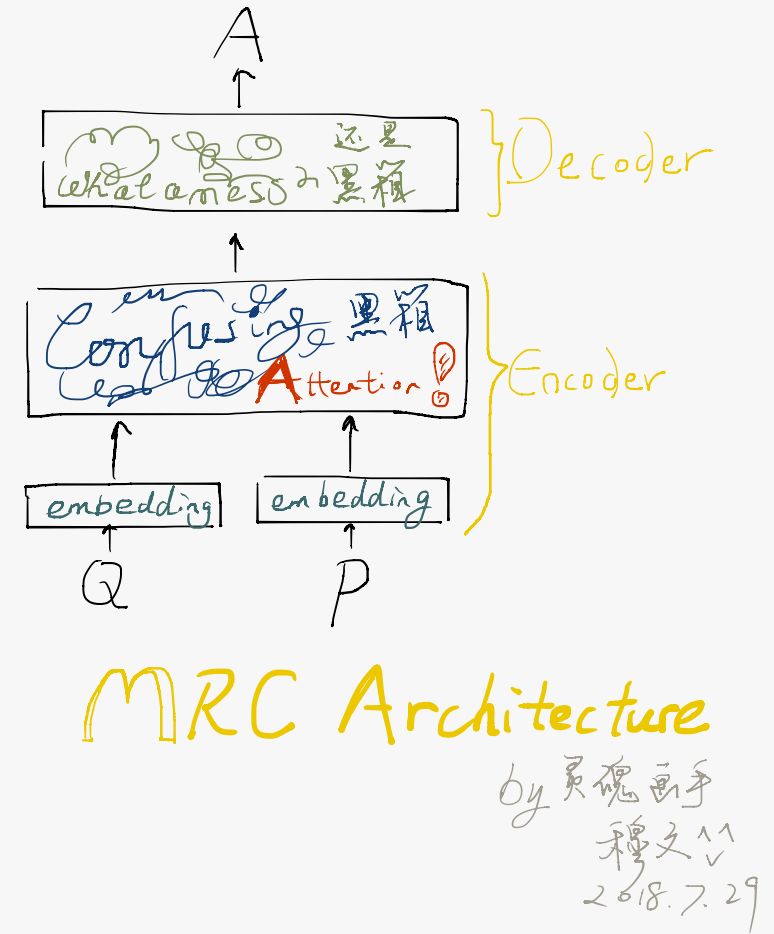 A
还是
what a mess 黑箱
Decoder
Confusing 黑箱
Attention!
Encoder
embedding embedding
Q P
MRC Architecture
by 灵魂画手
穆文^^
2018.7.29